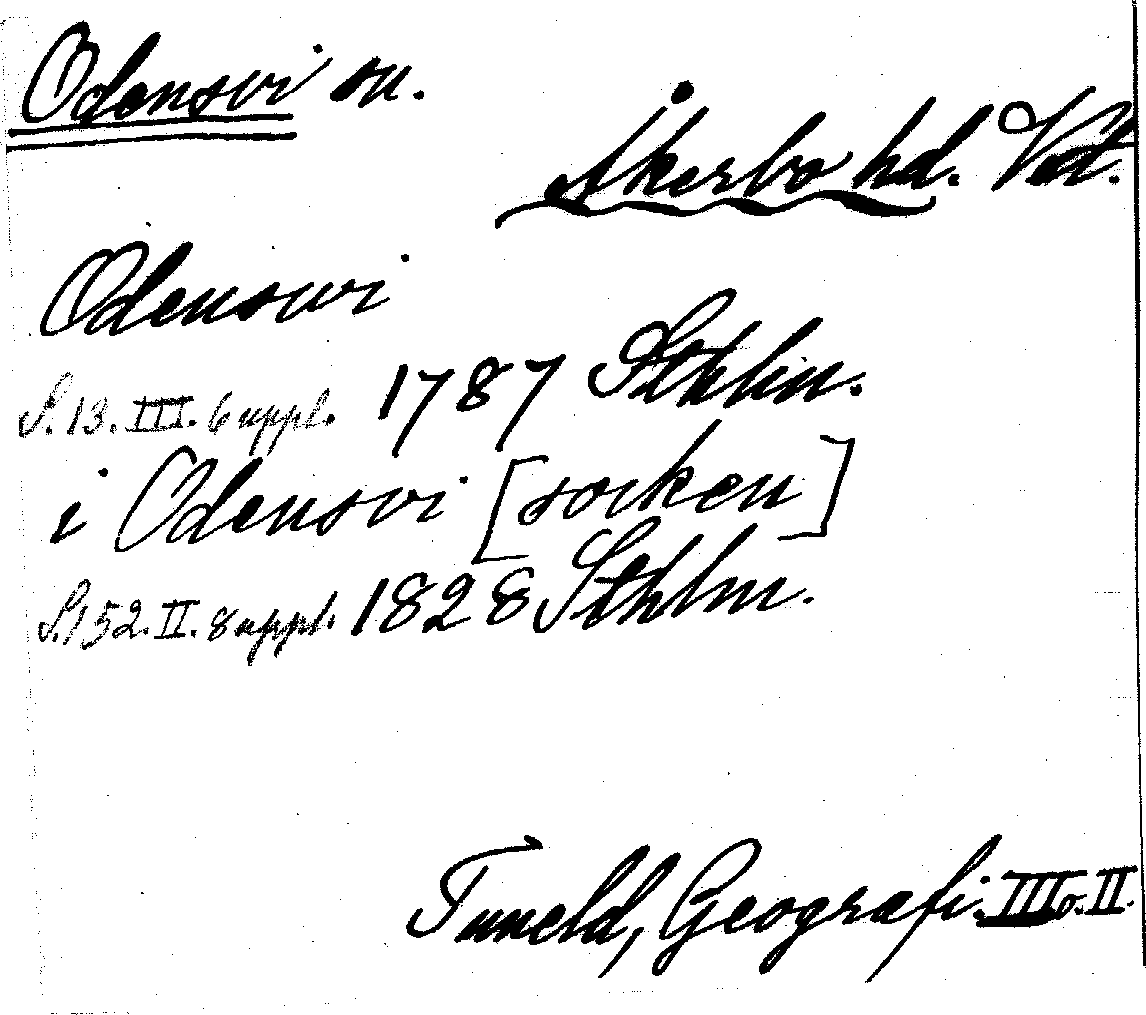 Odensvi sn.
Åkerbo hd. Vstm.
Odenswi
S. 13. III. 6 uppl. 1787 Sthlm.
i Odensvi [socken]
S. 152. II. 8 uppl. 1828 Sthlm.
Tuneld, Geografi. III o. II.